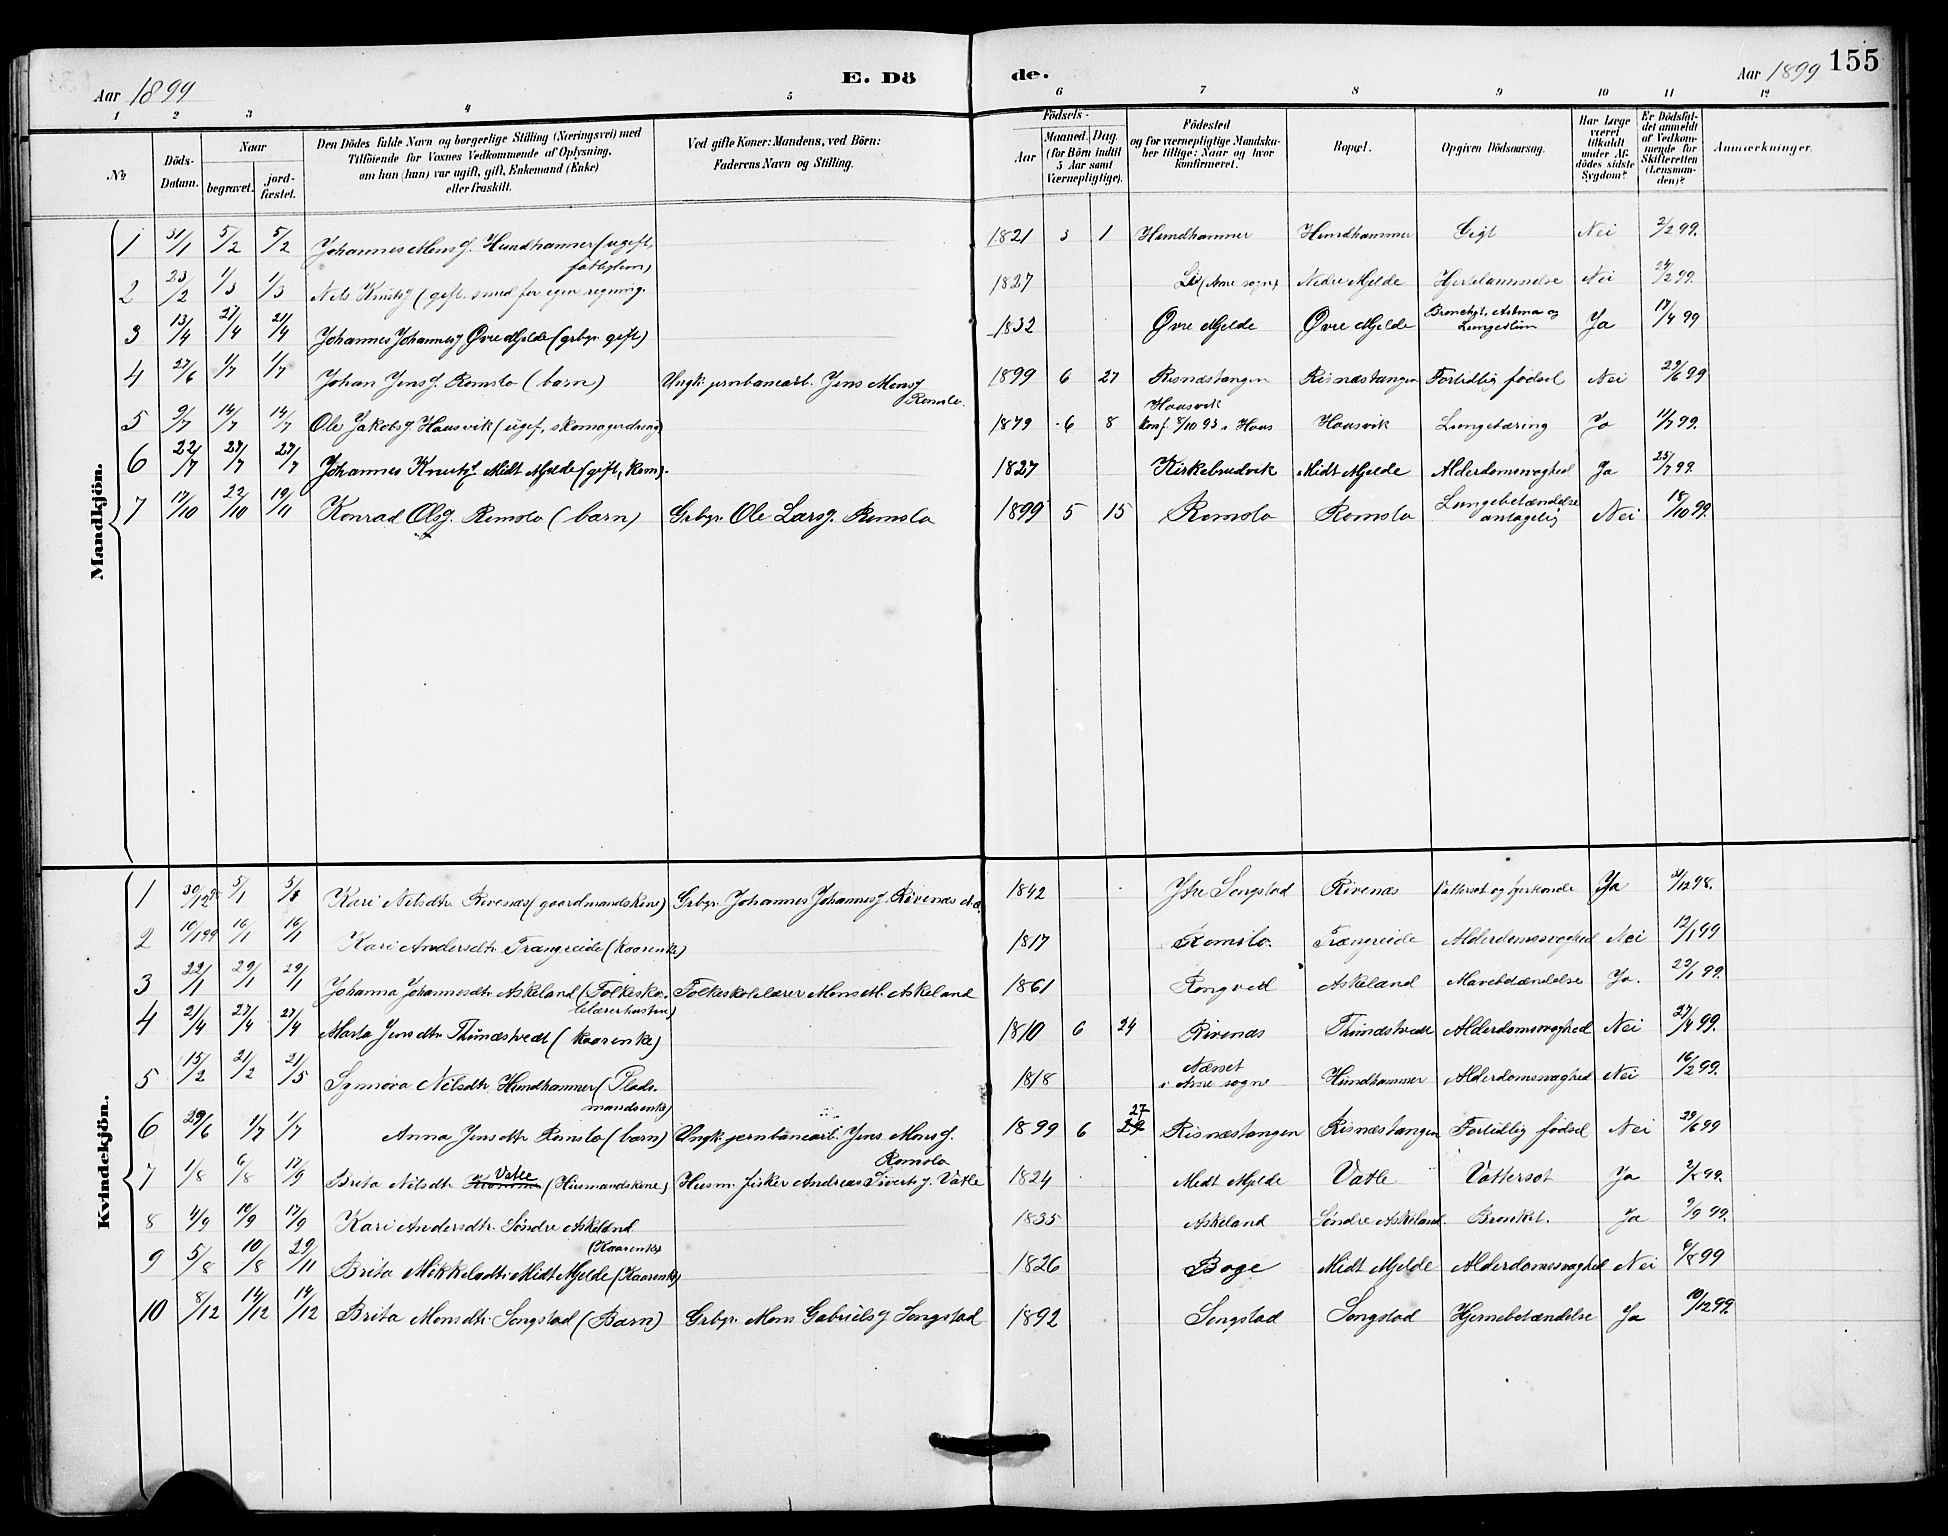 155
E. Döde.
Aar 1899
Aar 1899
1 2 3 4 5 6 7 8 9 10 11 12
No
Döds-Datum.
Naar
begravet.
jordfæstet.
Den Dödes fulde Navn og borgerlige Stilling (Næringsvei) med
Tilföiende for Voxnes Vedkommende af Oplysning,
om han (hun) var ugift, gift, Enkemand (Enke)
eller fraskilt.
Ved gifte Koner: Mandens, ved Börn:
Faderens Navn og Stilling.
Födsels-
Aar
Maaned. Dag.
(for Börn indtil
5 Aar samt
Værnepligtige).
Födested
og for værnepligtige Mandskaber tillige: Naar og hvor
konfirmeret.
Bopæl.
Opgiven Dödsaarsag.
Har Læge
været
tilkaldt
under Afdödes sidste
Sygdom?
Er Dödsfaldet anmeldt
af Vedkommende for
Skifteretten
(Lensmanden)?
Anmærkninger.
Mandkjön.
1 31/1 5/2 5/2 Johannes Monsg. Hundhammer (ugift, fattiglem) 1821 3 1 Hundhammer Hundhammer Gigt Nei 2/2 99.
2 23/2 1/3 1/3 Nils Knutsg (gift. smed for egen regning. 1827 Li (Arne sogn) Nedre Mjelde Hjertelammelse Nei 24/2 99.
3 13/4 21/4 21/4 Johannes Johannesg Øvre Mjelde (grbgr. gift) 1832 Øvre Mjelde Øvre Mjelde Bronchyt, Astma og Lungeslim Ja 17/4 99
4 27/6 1/7 1/7 Johan Jensg. Romslo (barn) Ungk. jernbanearb. Jens Monsg Romslo. 1899 6 27 Risnæstangen Risnæstangen Fortidlig födsel Nei 29/6 99
5 9/7 14/7 14/7 Ole Jakobsg Hausvik (ugif, skomagerdreng) 1879 6 8 Hausvik konf. 8/10 93 i Haus Hausvik Lungetæring Ja 11/7 99.
6 22/7 27/7 27/7 Johannes Knutsg Midt Mjelde (gift, Kaarm). 1827 Kirkebrudvik Midt Mjelde Alderdomssvaghed Ja 25/7 99.
7 17/10 22/10 19/11 Konrad Olsg. Romslo (barn) Grbgr. Ole Larsg. Romslo 1899 5 15 Romslo Romslo Lungebetændelse antagelig Nei 18/10 99.
Kvindekjön.
1 30/12 98 5/1 5/1 Kari Nilsdtr. Rivenæs (gaardmandskone) Grbgr. Johannes Johannesg. Rivenæs 1842 Ytre Songstad Rivenæs Vattersot og Ja 31/12 98.
2 10/1 99 16/1 16/1 Kari Andersdtr. Trængreide (kaarenke) 1817 Romslo. Trængreide Alderdomssvaghed Nei 12/1 99
3 22/1 29/1 29/1 Johanna Johannesdtr. Askeland (Folkeskolelærerhustru) Folkeskolelærer Mons M. Askeland 1861 Rongved Askeland Mavebetændelse Ja. 23/1 99.
4 21/4 27/4 27/4 Marta Jensdtr. Thunæstvedt (kaarenke) 1810 6 24 Rivenæs Thunæstvedt Alderdomssvaghed Nei 27/4 99.
5 15/2 21/2 21/5 Synnøva Nilsdtr. Hundhammer (Pladsmandsenke) 1818 Næsset i Arne sogn Hundhammer Alderdomssvaghed Nei 16/2 99.
6 29/6 1/7 1/7 Anna Jensdtr. Romslo (barn) Ungk. jernbanearb. Jens Monsg. Romslo 1899 6 27 Risnæstangen Risnæstangen Fortidlig födsel Nei 29/6 99
7 1/8 6/8 17/9 Brita Nilsdtr. Vatle (Husmandskone) Husm. fisker Andreas Sivertsg. Vatle 1824 Midt Mjelde Vatle Vattersot Ja 2/8 99.
8 4/9 10/9 17/9 Kari Andersdtr. Söndre Askeland (Kaarenke) 1835 Askeland Söndre Askeland. Bronket. Ja 9/9 99.
9 5/8 10/8 29/11 Brita Mikkelsdtr. Midt Mjelde (Kaarenke) 1826 Boge Midt Mjelde Alderdomssvaghed Nei 6/8 99
10 8/12 14/12 14/12 Brita Monsdtr. Songstad (Barn) Grbgr. Mons Gabrielsg Songstad 1892 Songstad Songstad Hjernebetændelse Ja 10/12 99.